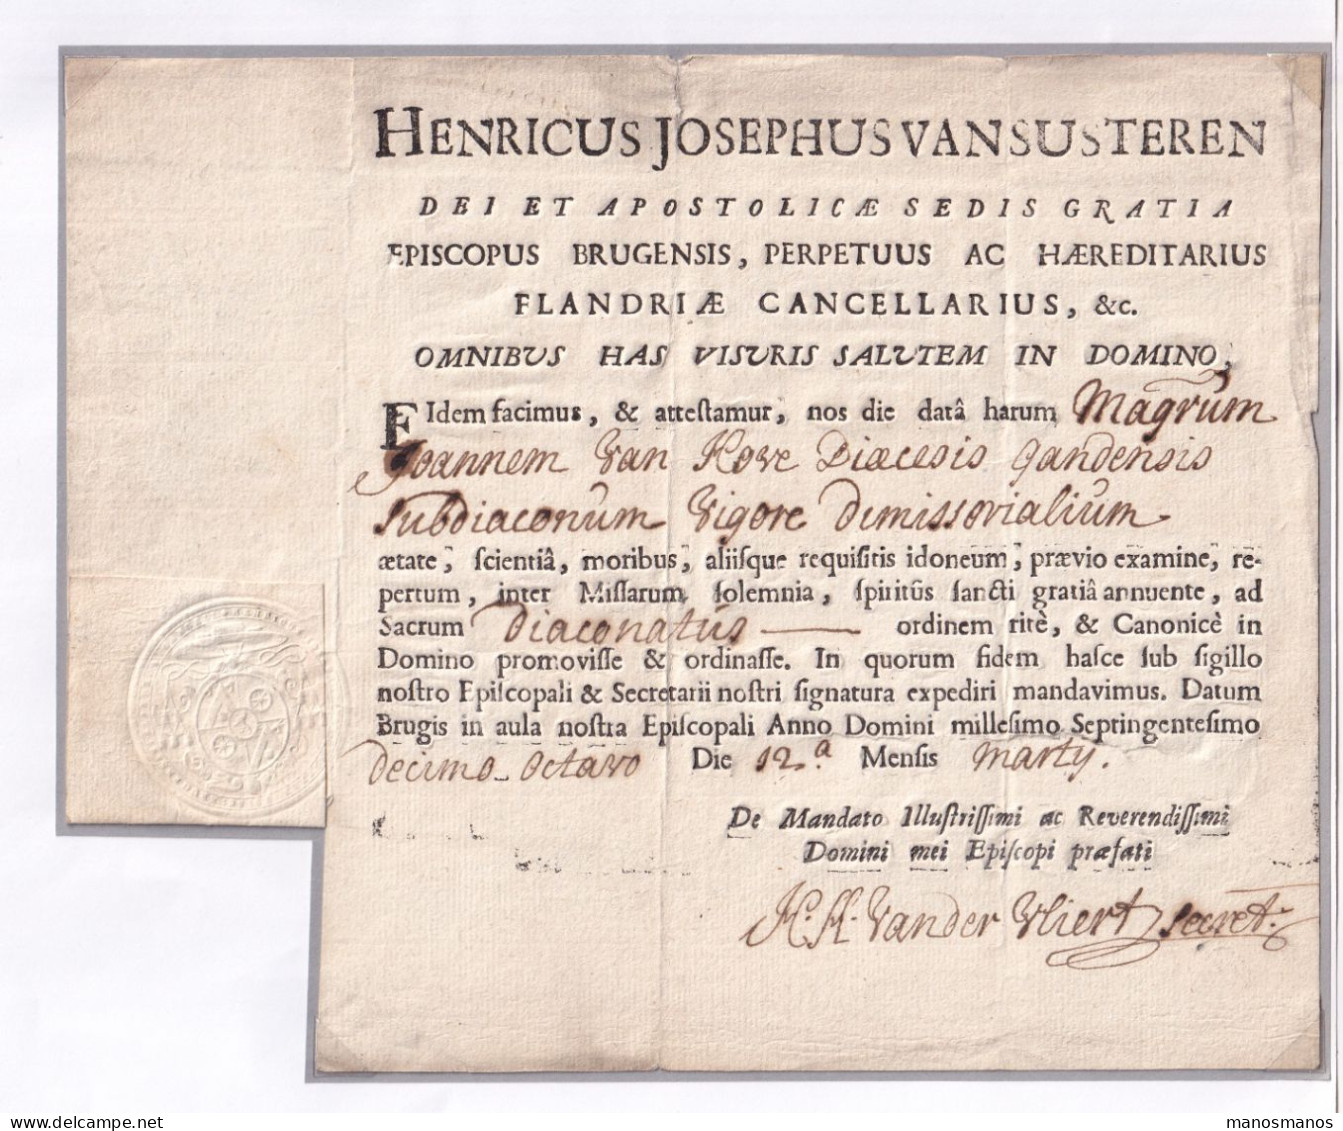 HENRICUS JOSEPHUS VAN SUSTEREN
DEI ET APOSTOLICÆ SEDIS GRATIA
EPISCOPUS BRUGENSIS, PERPETUUS AC HÆREDITARIUS
FLANDRIÆ CANCELLARIUS, &c.
OMNIBUS HAS VISURIS SALUTEM IN DOMINO,
FIdem facimus, & attestamur, nos die datâ harum Magrum
Joannem Van Hove Diæcesis gandensis
Subdiaconum Vigore Dimissorialium
ætate, scientiâ, moribus, aliisque requisitis idoneum, prævio examine, re-
pertum, inter Missarum solemnia, spiritûs sancti gratiâ annuente, ad
Sacrum Diaconatûs — ordinem ritè, & Canonicè in
Domino promovisse & ordinasse. In quorum fidem hasce sub sigillo
nostro Episcopali & Secretarii nostri signatura expediri mandavimus. Datum
Brugis in aula nostra Episcopali Anno Domini millesimo Septingentesimo
Decimo Octavo Die 12.ª Mensis Martij.
De Mandato Illustrissimi ac Reverendissimi
Domini mei Episcopi præfati
Vander Vliert secret.
manosmanos